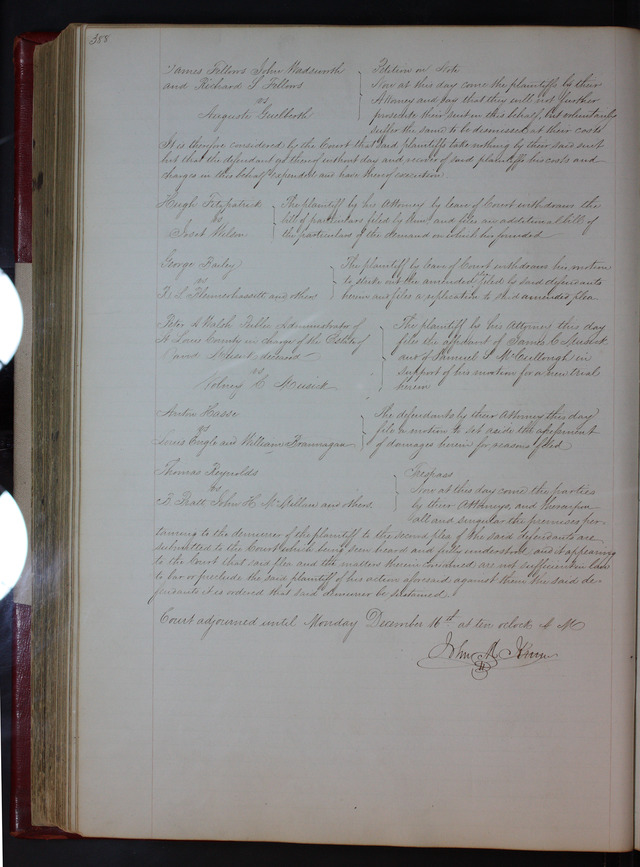 388
James Fellows John Wadsworth
and Richard S Fellows
vs
Auguste
Petition on Note
Now at this day come the plaintiffs by their
Attorney and say that they will not further
prosecute their suit in this behalf, but voluntarily
suffer the same to be dismissed at their costs
It is therefore considered by the Court that said plaintiffs take nothing by their said suit
but that the defendant go thereof without day and recover of said plaintiffs his costs and
charges in this behalf expended and have thereof execution.
Hugh Fitzpatrick
vs
Jacob Wilson
The plaintiff by his Attorney by leave of Court withdraws the
bill of particulars filed by him and files an additional bill of
the particulars of the demand on which his founded
George Bailey
vs
R S and others
The plaintiff by leave of Court withdraws his motion
to strike out the amended filed by said defendants
herein and files a replication to said amended plea
Peter A Walsh Public Administrator of
St Louis County in charge of the Estate of
David deceased
vs
C Music
The plaintiff by his Attorney this day
files the affidavit of James C
and of Samuel S McCullough in
support of his motion for a new trial
herein
Anton Hasse
vs
Lewis Engle and William Brannagan
The defendants by their Attorney this day
file a motion to set aside the assessment
of damages herein for reasons filed
Thomas Reynolds
vs
B Pratt John H McMillan and others
Trespass
Now at this day come the parties
by their Attorneys, and thereupon
all and singular the premises per-
taining to the demurrer of the plaintiff to the second plea of the said defendants are
submitted to the Court which being seen heard and fully understood and it appearing
to the Court that said plea and the matters therein contained are not sufficient in law
to bar or preclude the said plaintiff of his action aforesaid against them the said de-
fendants it is ordered that said demurrer be sustained
Court adjourned until Monday December 16th at ten oclock A M
John M